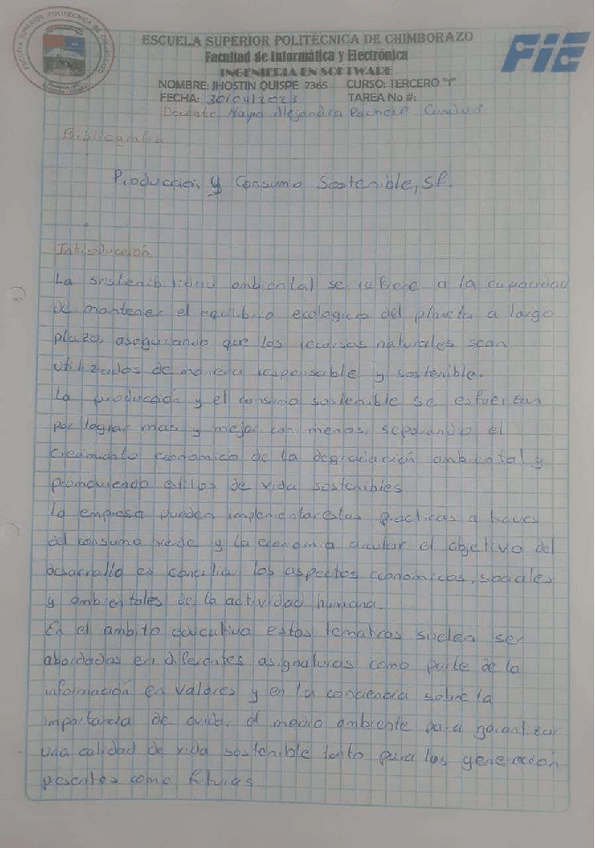 ESCUELA SUPERIOR POLITÉCNICA DE CHIMBORAZO
Facultad de Informática y Electrónica
INGENIERÍA EN SOFTWARE
NOMBRE: JHOSTIN QUISPE 7365 CURSO: TERCERO "1"
FECHA: 30/04/2023 TAREA No #:
FIE
Docente Mayra Alejandra Pacheco
Bibliografia
Producción y Consumo Sostenible, Sf.
Introducción
La sostenibilidad ambiental se refiere a la capacidad
de mantener el equilibrio ecologico del planeta a largo
plazo, asegurando que los recursos naturales sean
utilizados de manera responsable y sostenible.
La producción y el consumo sostenible se esfuerzan
por lograr mas y mejor con menos, separando el
crecimiento economico de la degradación ambiental y
promoviendo estilos de vida sostenibles.
La empresa pueden implementar estas practicas a traves
del consumo verde y la economia circular el objetivo del
desarrollo es concilia los aspectos economicos, sociales
y ambientales de la actividad humana.
En el ambito educativo estas tematicas suelen ser
abordadas en diferentes asignaturas como parte de la
información en valores y en la conciencia sobre la
importancia de cuidar el medio ambiente para garantizar
una calidad de vida sostenible tanto para las generación
presentes como futuras.